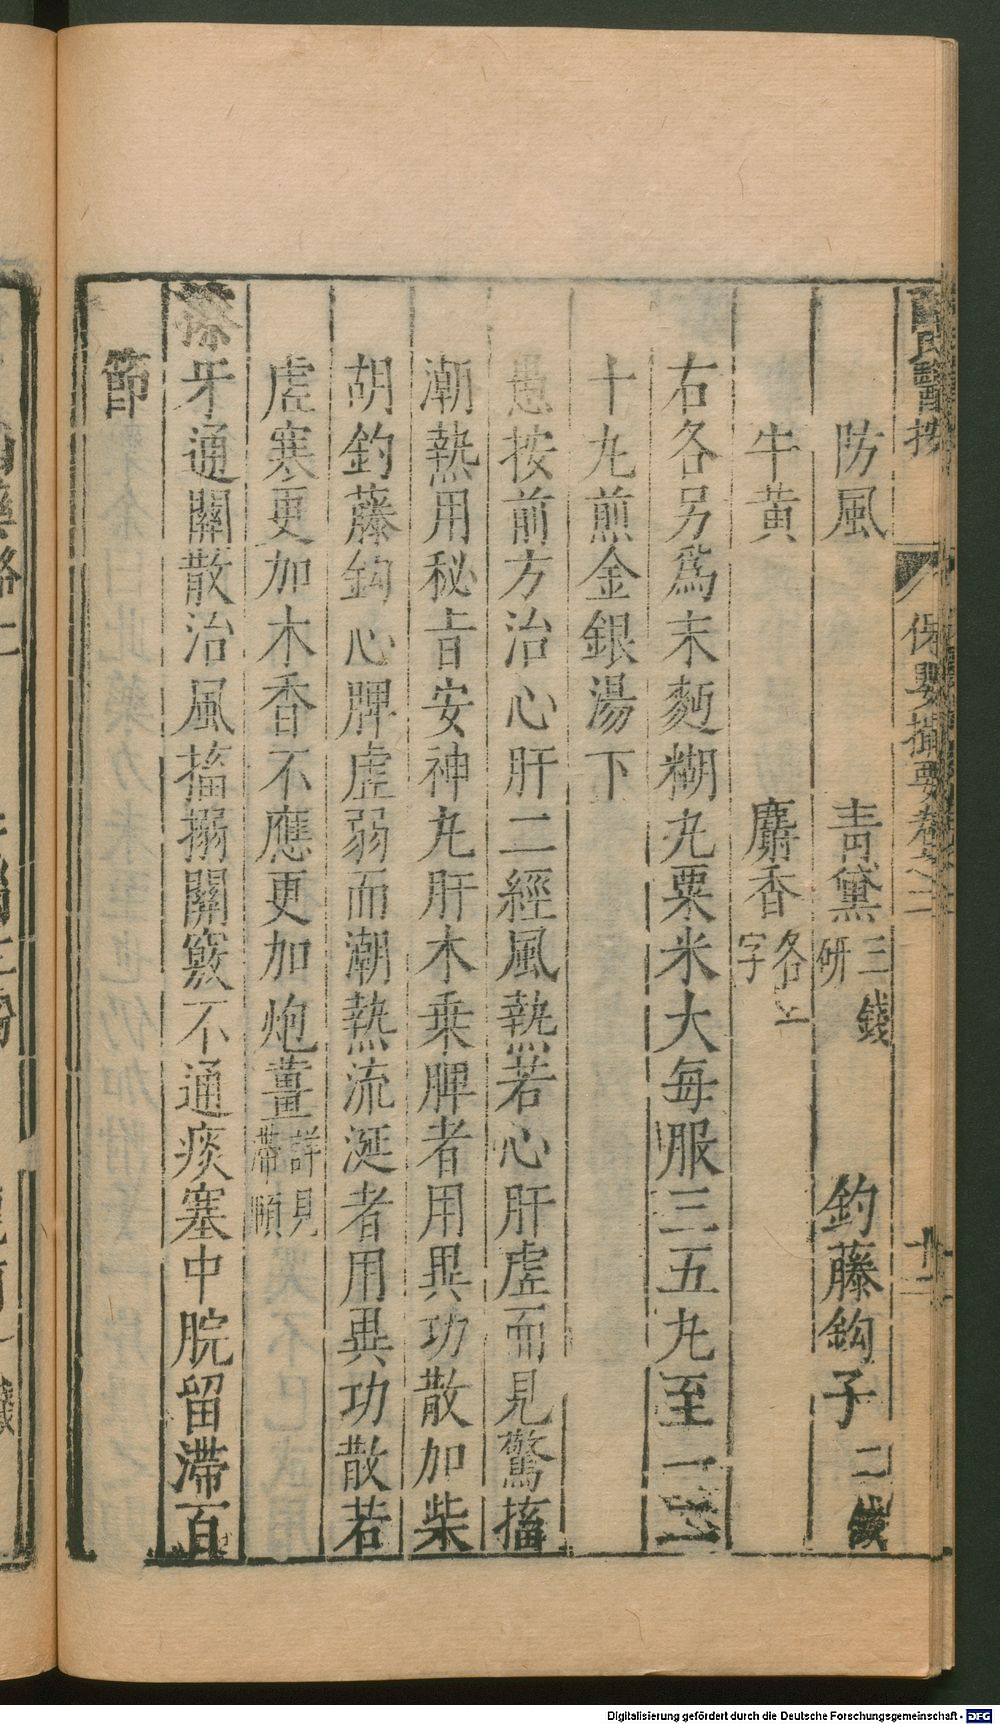 薛氏醫按 保嬰撮要卷之二 十二
防風 青黛三錢研 釣藤鈎子二錢
牛黃 麝香各一字
右各另爲末麪糊丸粟米大每服三五丸至一二
十丸煎金銀湯下
愚按前方治心肝二經風熱若心肝虛而見驚搐
潮熱用秘旨安神丸肝木乗脾者用異功散加柴
胡釣藤鈎心脾虛弱而潮熱流涎者用異功散若
虛寒更加木香不應更加炮薑詳見滯頤
牙通關散治風搐搦關竅不通痰塞中脘留滯百
節
Digitalisierung gefördert durch die Deutsche Forschungsgemeinschaft - DFG